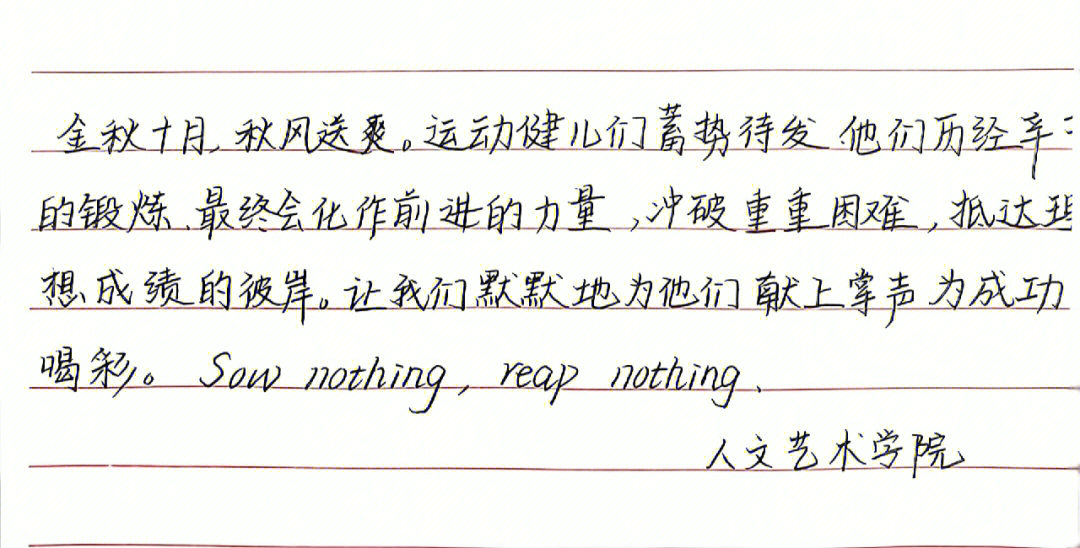 金秋十月,秋风送爽。运动健儿们蓄势待发.他们历经辛
的锻炼.最终会化作前进的力量,冲破重重困难,抵达理
想成绩的彼岸。让我们默默地为他们献上掌声为成功
喝彩。Sow nothing, reap nothing.
人文艺术学院